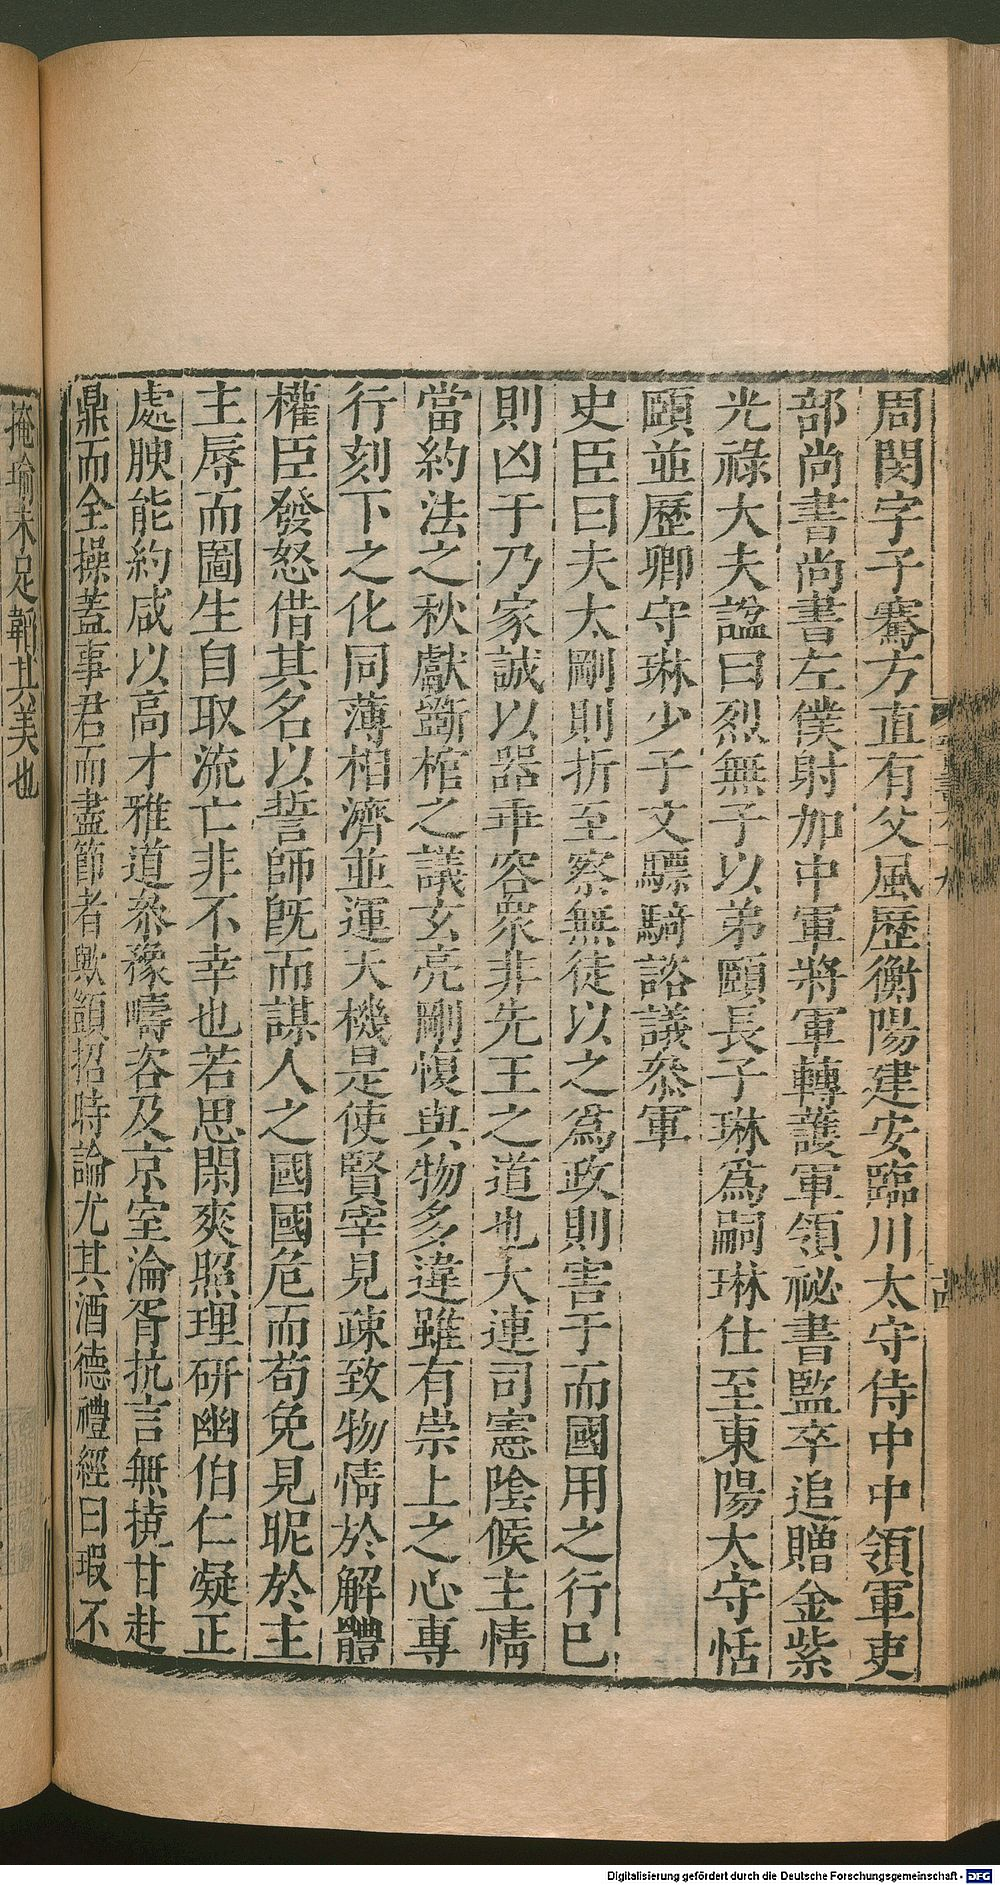 周閔字子騫方直有父風歷衡陽建安臨川太守侍中中領軍吏
部尚書尚書左僕射加中軍將軍轉護軍領祕書監卒追贈金紫
光祿大夫諡曰烈無子以弟頤長子琳爲嗣琳仕至東陽太守恬
頤並歷卿守琳少子文驃騎諮議叅軍
史臣曰夫太剛則折至察無徒以之爲政則害于而國用之行已
則凶于乃家誠以器乖容衆非先王之道也大連司憲陰候主情
當約法之秋獻斵棺之議玄亮剛愎與物多違雖有崇上之心專
行刻下之化同薄相濟並運天機是使賢宰見疎致物情於解體
權臣發怒借其名以誓師旣而謀人之國國危而苟免見昵於主
主辱而圖生自取流亡非不幸也若思閑爽照理研幽伯仁凝正
處腴能約咸以高才雅道叅豫疇咨及京室淪胥抗言無撓甘赴
鼎而全操蓋事君而盡節者歟顗招時論尤其酒德禮經曰瑕不
掩瑜未足韜其美也
Digitalisierung gefördert durch die Deutsche Forschungsgemeinschaft - DFG